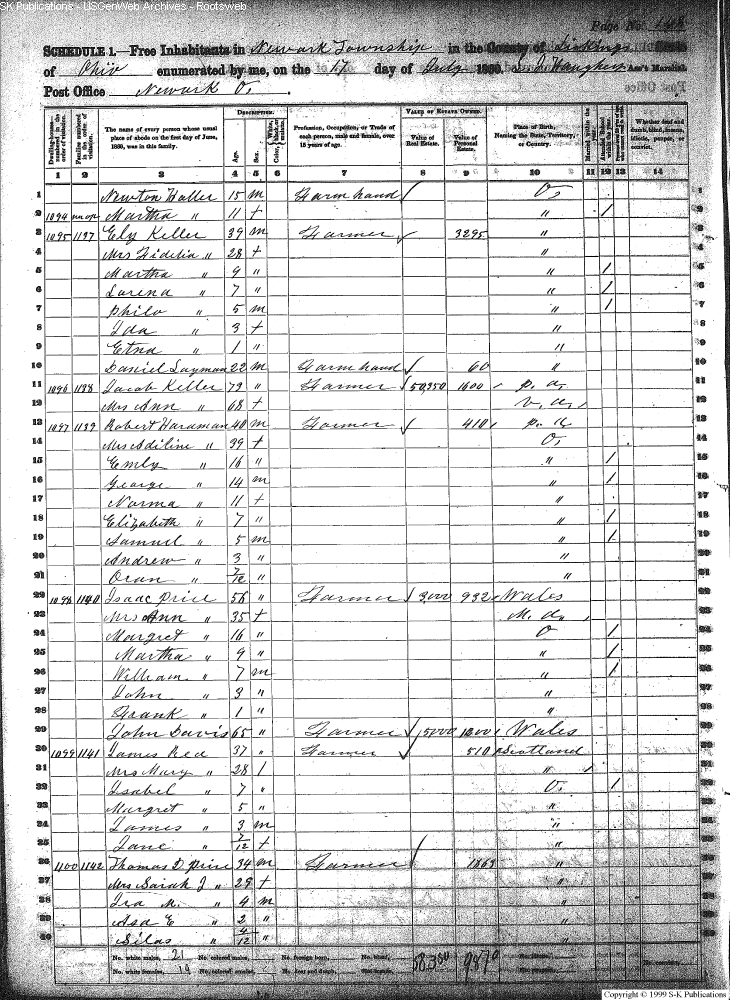 SK Publications - USGenWeb Archives - Rootsweb
Page No. 148
SCHEDULE 1.—Free Inhabitants in Newark Township in the County of Licking State
of Ohio enumerated by me, on the 17 day of July 1860. Ass't Marshal.
Post Office Newark O.
Dwelling-houses—numbered in the order of visitation. Families numbered in the order of visitation. The name of every person whose usual place of abode on the first day of June, 1860, was in this family. DESCRIPTION. Age. Sex. Color, White, black, or mulatto. Profession, Occupation, or Trade of each person, male and female, over 15 years of age. VALUE OF ESTATE OWNED. Value of Real Estate. Value of Personal Estate. Place of Birth, Naming the State, Territory, or Country. Married within the year. Whether deaf and dumb, blind, insane, idiotic, pauper, or convict.
1 2 3 4 5 6 7 8 9 10 11 12 13 14
1 Newton Haller 15 m Farm hand O, 1
2 1094 un op Martha " 11 + " / 2
3 1095 1137 Ely Keller 39 m Farmer 3295 " 3
4 Mrs Fidelia " 28 + " 4
5 Martha " 9 " " / 5
6 Lorena " 7 " " / 6
7 Philo " 5 m " / 7
8 Ida " 3 + " 8
9 Etna " 1 " " 9
10 Daniel Layman 22 m Farm hand 60 " 10
11 1096 1138 Jacob Keller 79 " Farmer 50,350 1600 p. a, 11
12 Mrs Ann " 68 + v. a, 12
13 1097 1139 Robert Hardman 40 m Farmer 410 p. a 13
14 Mrs Adiline " 39 + O, 14
15 Emly " 16 " " / 15
16 George " 14 m " / 16
17 Norma " 11 + " 17
18 Elizabeth " 7 " " / 18
19 Samuel " 5 m " / 19
20 Andrew " 3 " " 20
21 Oran " 7/12 " " 21
22 1098 1140 Isaac Price 56 " Farmer 3,000 932 Wales 22
23 Mrs Ann " 35 + M. d. 23
24 Margret " 16 " O / 24
25 Martha " 9 " " / 25
26 William " 7 m " / 26
27 John " 3 " " 27
28 Frank " 1 " " 28
29 John Davis 65 " Farmer 5000 1200 Wales 29
30 1099 1141 James Rea 37 " Farmer 510 Scotland 30
31 Mrs Mary " 28 / " / 31
32 Isabel " 7 " O, / 32
33 Margret " 5 " " 33
34 James " 3 m " 34
35 Jane " 7/12 + " 35
36 1100 1142 Thomas D. Price 34 m Farmer 1863 " 36
37 Mrs Sarah J " 29 + " 37
38 Ira M. " 4 m " 38
39 Asa E " 2 " " 39
40 Silas " 4/12 " " 40
No. white males, 21 No. colored males, No. foreign born, No. blind, 58,350 9870
No. white females, 19 No. colored females, No. deaf and dumb,
Copyright © 1999 S-K Publications